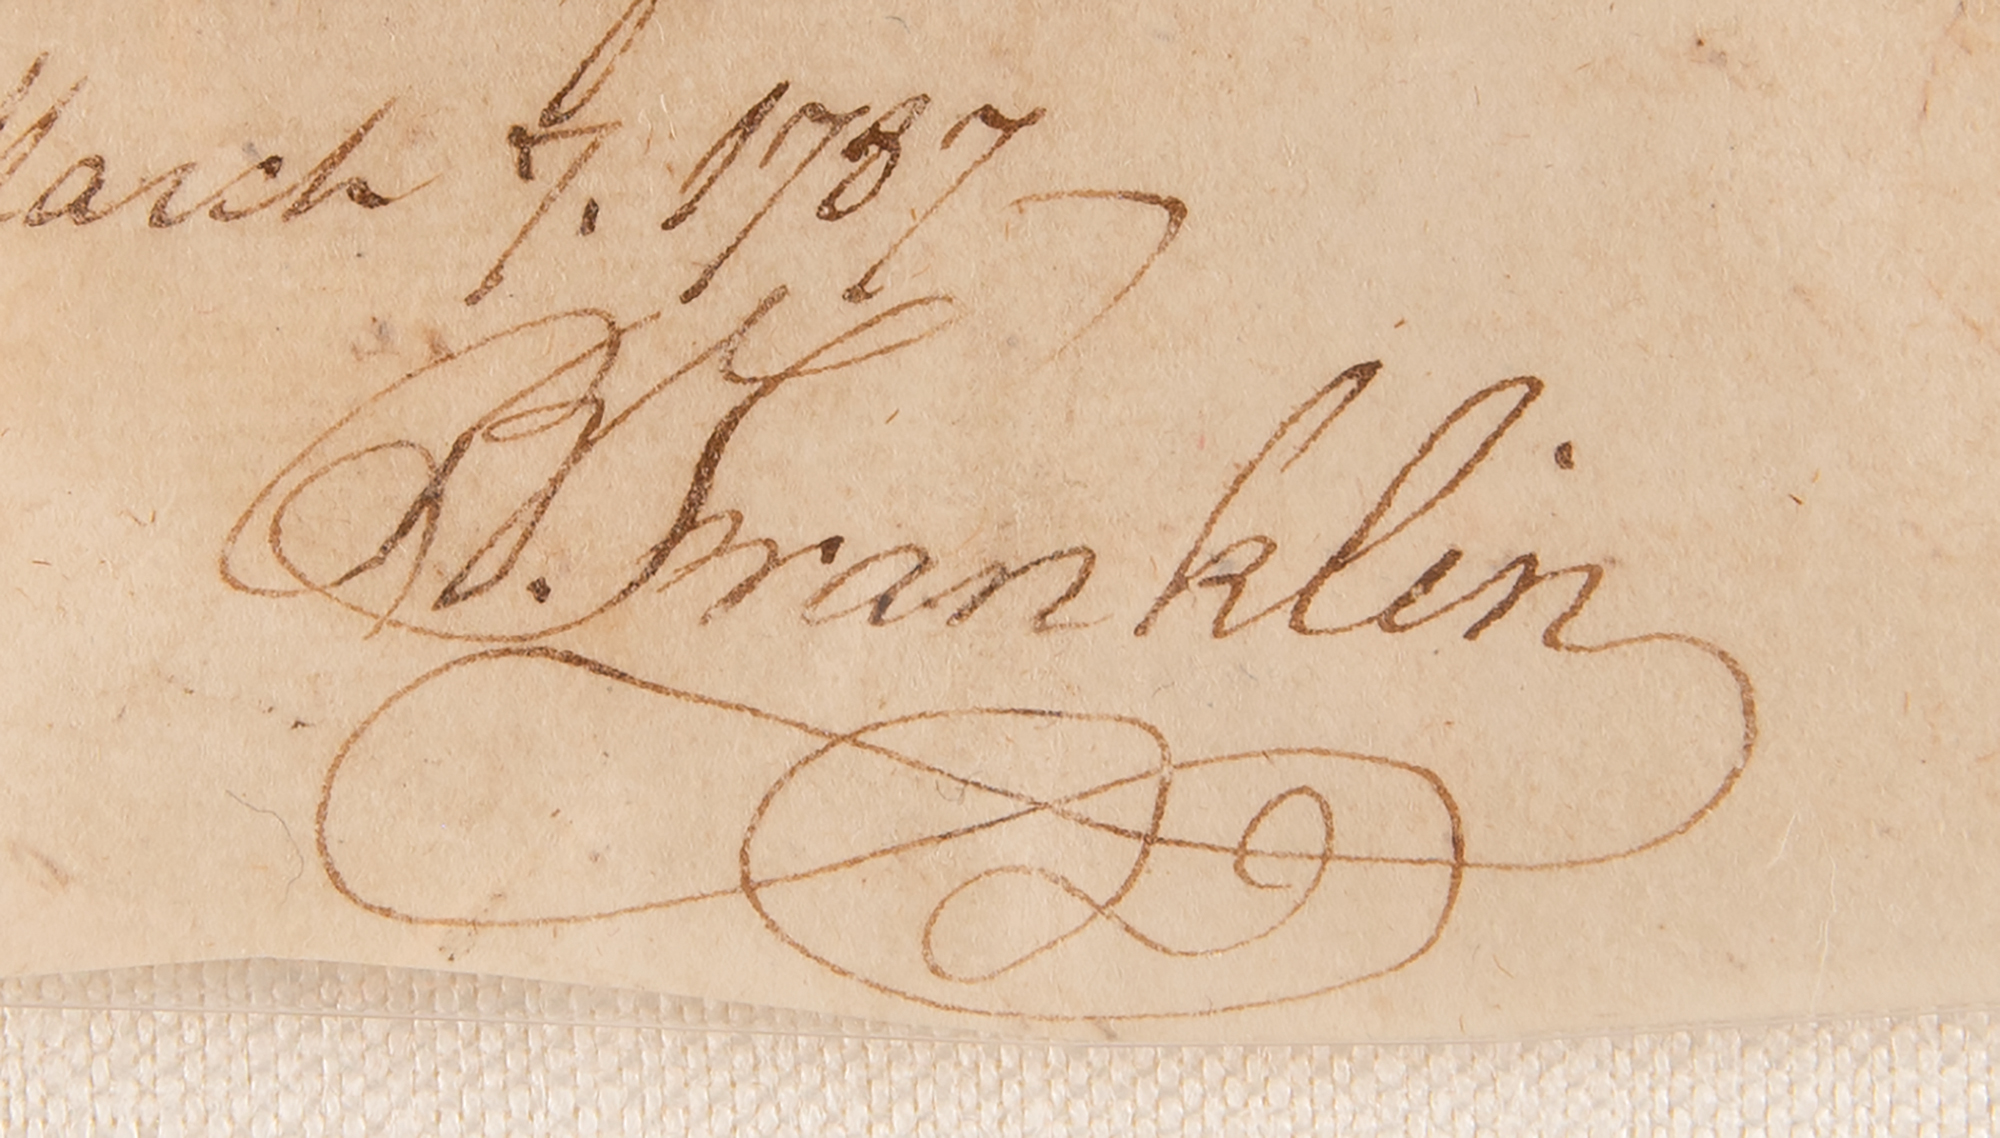 March 7. 1787
B. Franklin